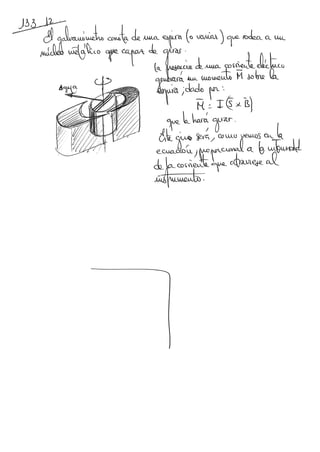 133 12
El galvanómetro consta de una espira (o varias) que rodea a un
núcleo metálico que capaz de girar.
La presencia de una corriente eléctrica
generará un momento M̄ sobre la
aguja, dado por:
Aguja
M̄ = I (S̄ x B̄)
que la hará girar.
Este giro será, como vemos en la
ecuación, proporcional a la intensidad
de la corriente que atraviese al
instrumento.